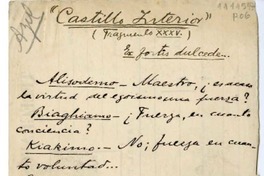 "Castillo Interior"
(Fragmento XXXV.)
Ex fortis dulcedo...
Alisodemo - Maestro, ¿es acaso
la virtud del egoismo una fuerza?
Biaghiamo - ¿Fuerza, en cuanto
conciencia?
Kiakimo - No; fuerza en cuan-
to voluntad...